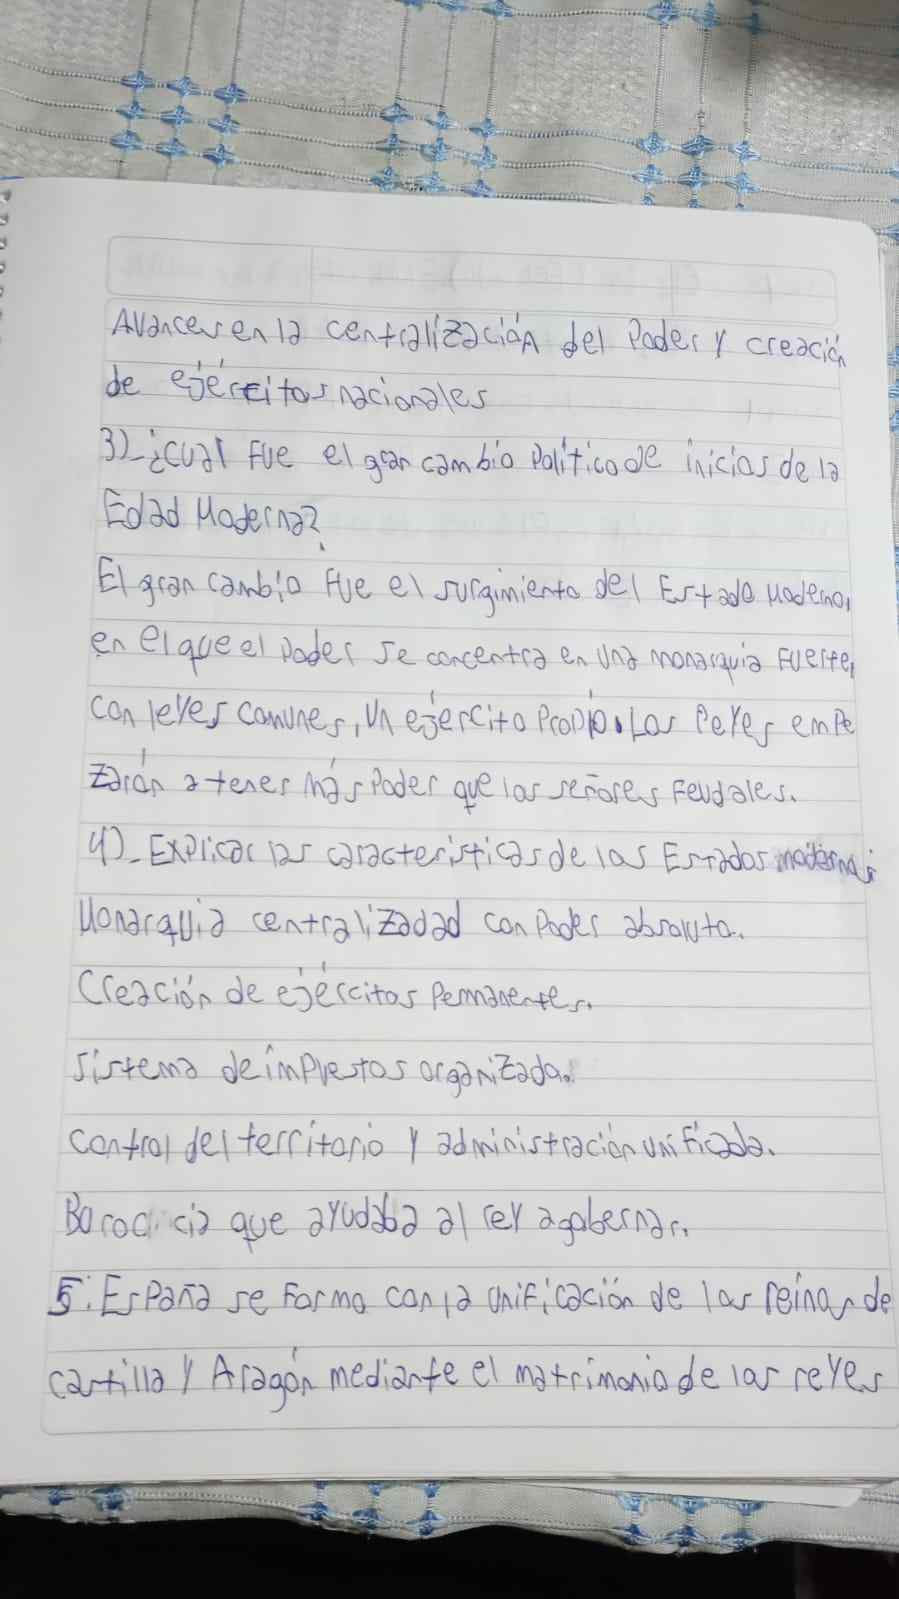 Avances en la centralización del Poder y creación
de ejércitos nacionales
3)_ ¿cual fue el gran cambio Político de inicios de la
Edad Moderna?
El gran cambio fue el surgimiento del Estado Moderno,
en el que el Poder se concentra en una monarquia fuerte,
con leyes comunes, un ejército Propio. Los Reyes empe
zarón a tener más Poder que los señores Feudales.
4)_ Explicar las caracteristicas de los Estados modernos
Monarquia centralizadad con Poder absoluto.
Creación de ejércitos Permanentes.
Sistema de impuestos organizado.
Control del territorio y administración unificada.
que ayudaba al rey a gobernar.
5. España se forma con la unificación de los reinos de
castilla y Aragón mediante el matrimonio de los reyes